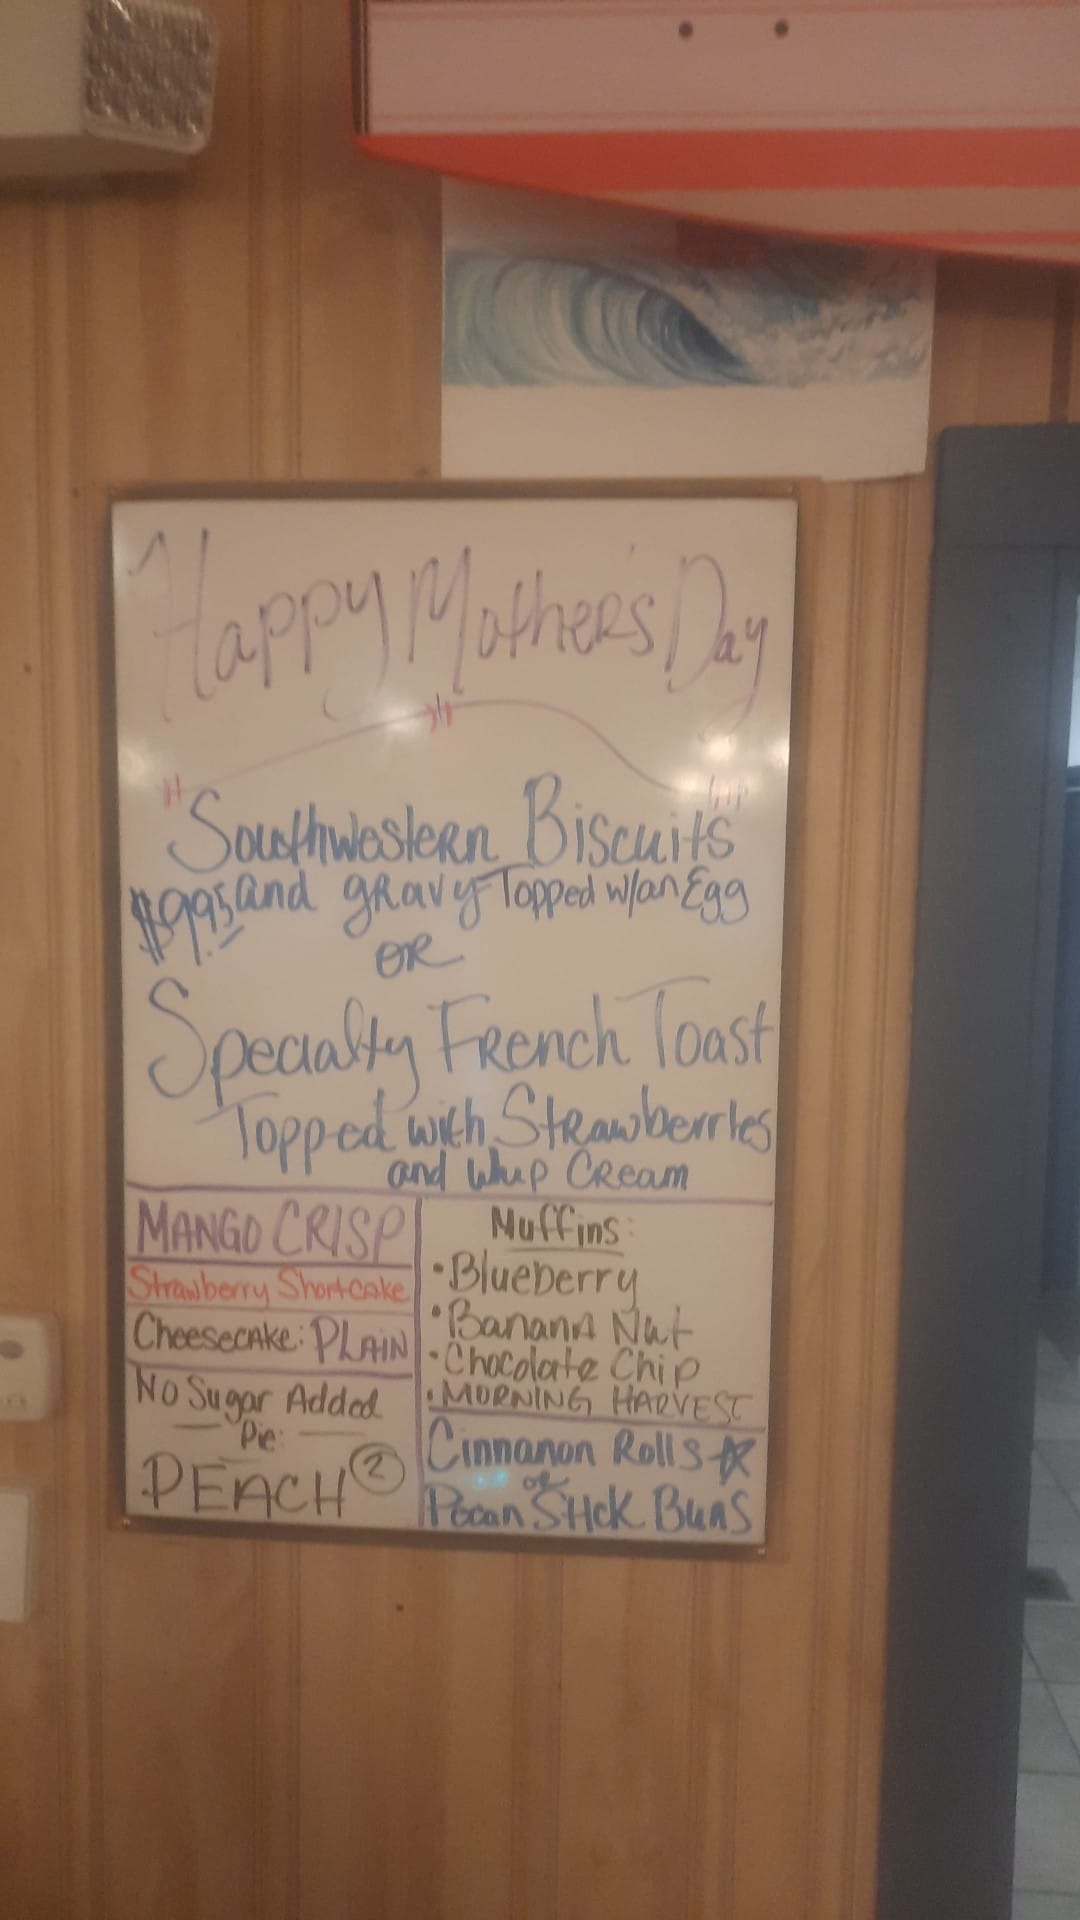 Happy Mother's Day
Southwestern Biscuits
$9.95 and gravy Topped w/an Egg
OR
Specialty French Toast
Topped with Strawberries
and Whip Cream
MANGO CRISP
Strawberry Shortcake
Cheesecake: PLAIN
No Sugar Added
Pie:
PEACH 2
Muffins:
• Blueberry
• Banana Nut
• Chocolate Chip
• MORNING HARVEST
Cinnanon Rolls
or
Pecan Stick Buns